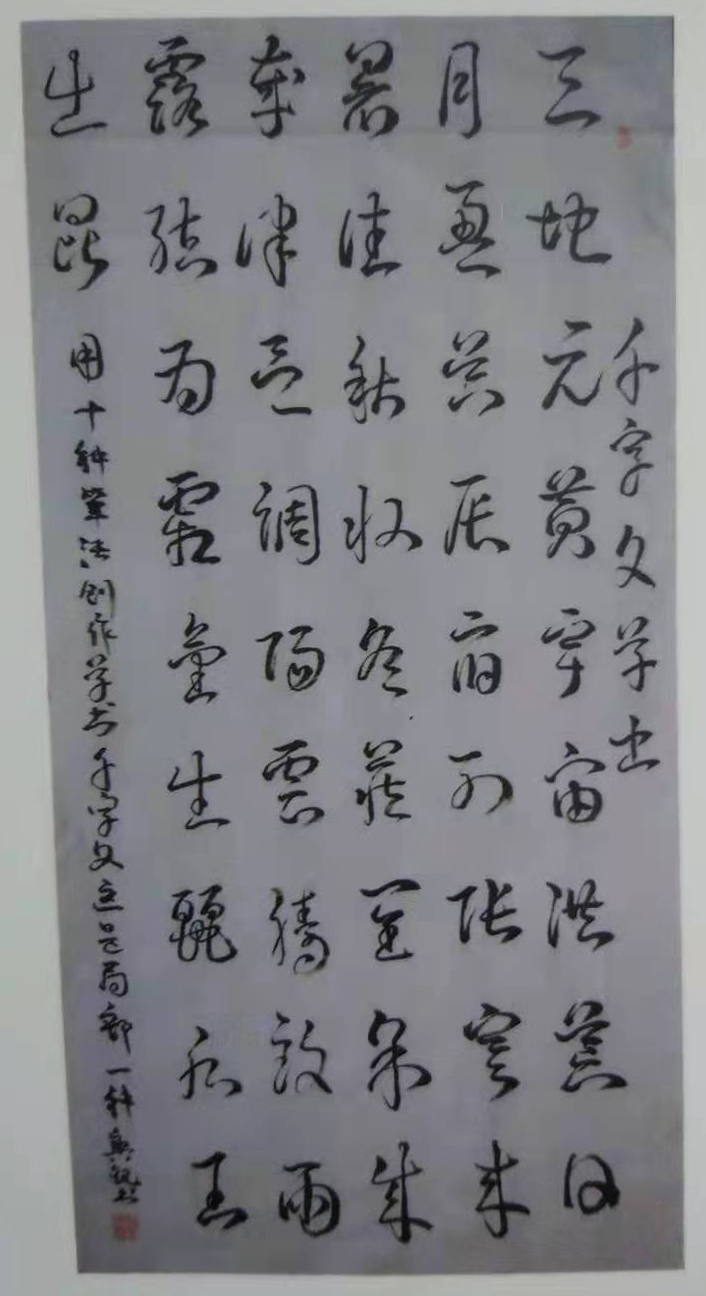 千字文草书
天地元黄宇宙洪荒日
月盈昃辰宿列张寒来
暑往秋收冬藏闰余成
岁律吕調阳雲腾致雨
露结为霜金生麗水玉
出昆
用十种笔法创作草书千字文这是局部一种